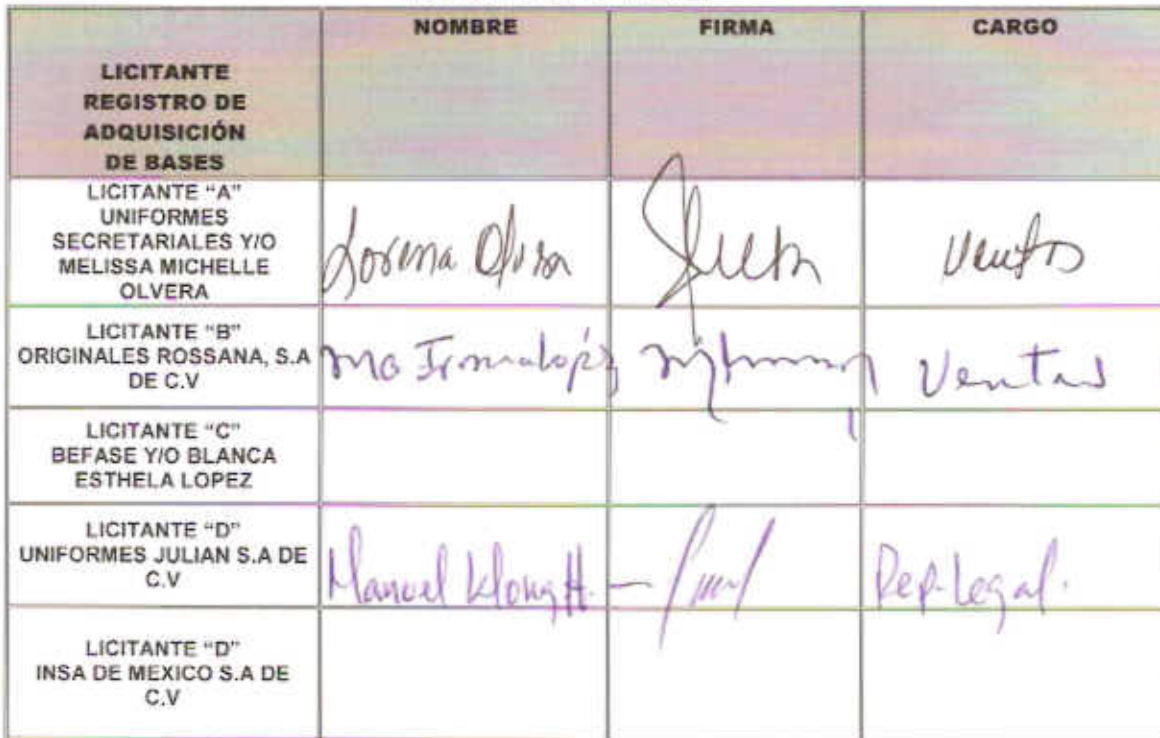 NOMBRE FIRMA CARGO
LICITANTE
REGISTRO DE
ADQUISICIÓN
DE BASES
LICITANTE "A"
UNIFORMES
SECRETARIALES Y/O
MELISSA MICHELLE
OLVERA
Lorena Ventas
LICITANTE "B"
ORIGINALES ROSSANA, S.A
DE C.V
Ma Irma López Ventas
LICITANTE "C"
BEFASE Y/O BLANCA
ESTHELA LOPEZ
LICITANTE "D"
UNIFORMES JULIAN S.A DE
C.V
Manuel H. Rep. Legal.
LICITANTE "D"
INSA DE MEXICO S.A DE
C.V